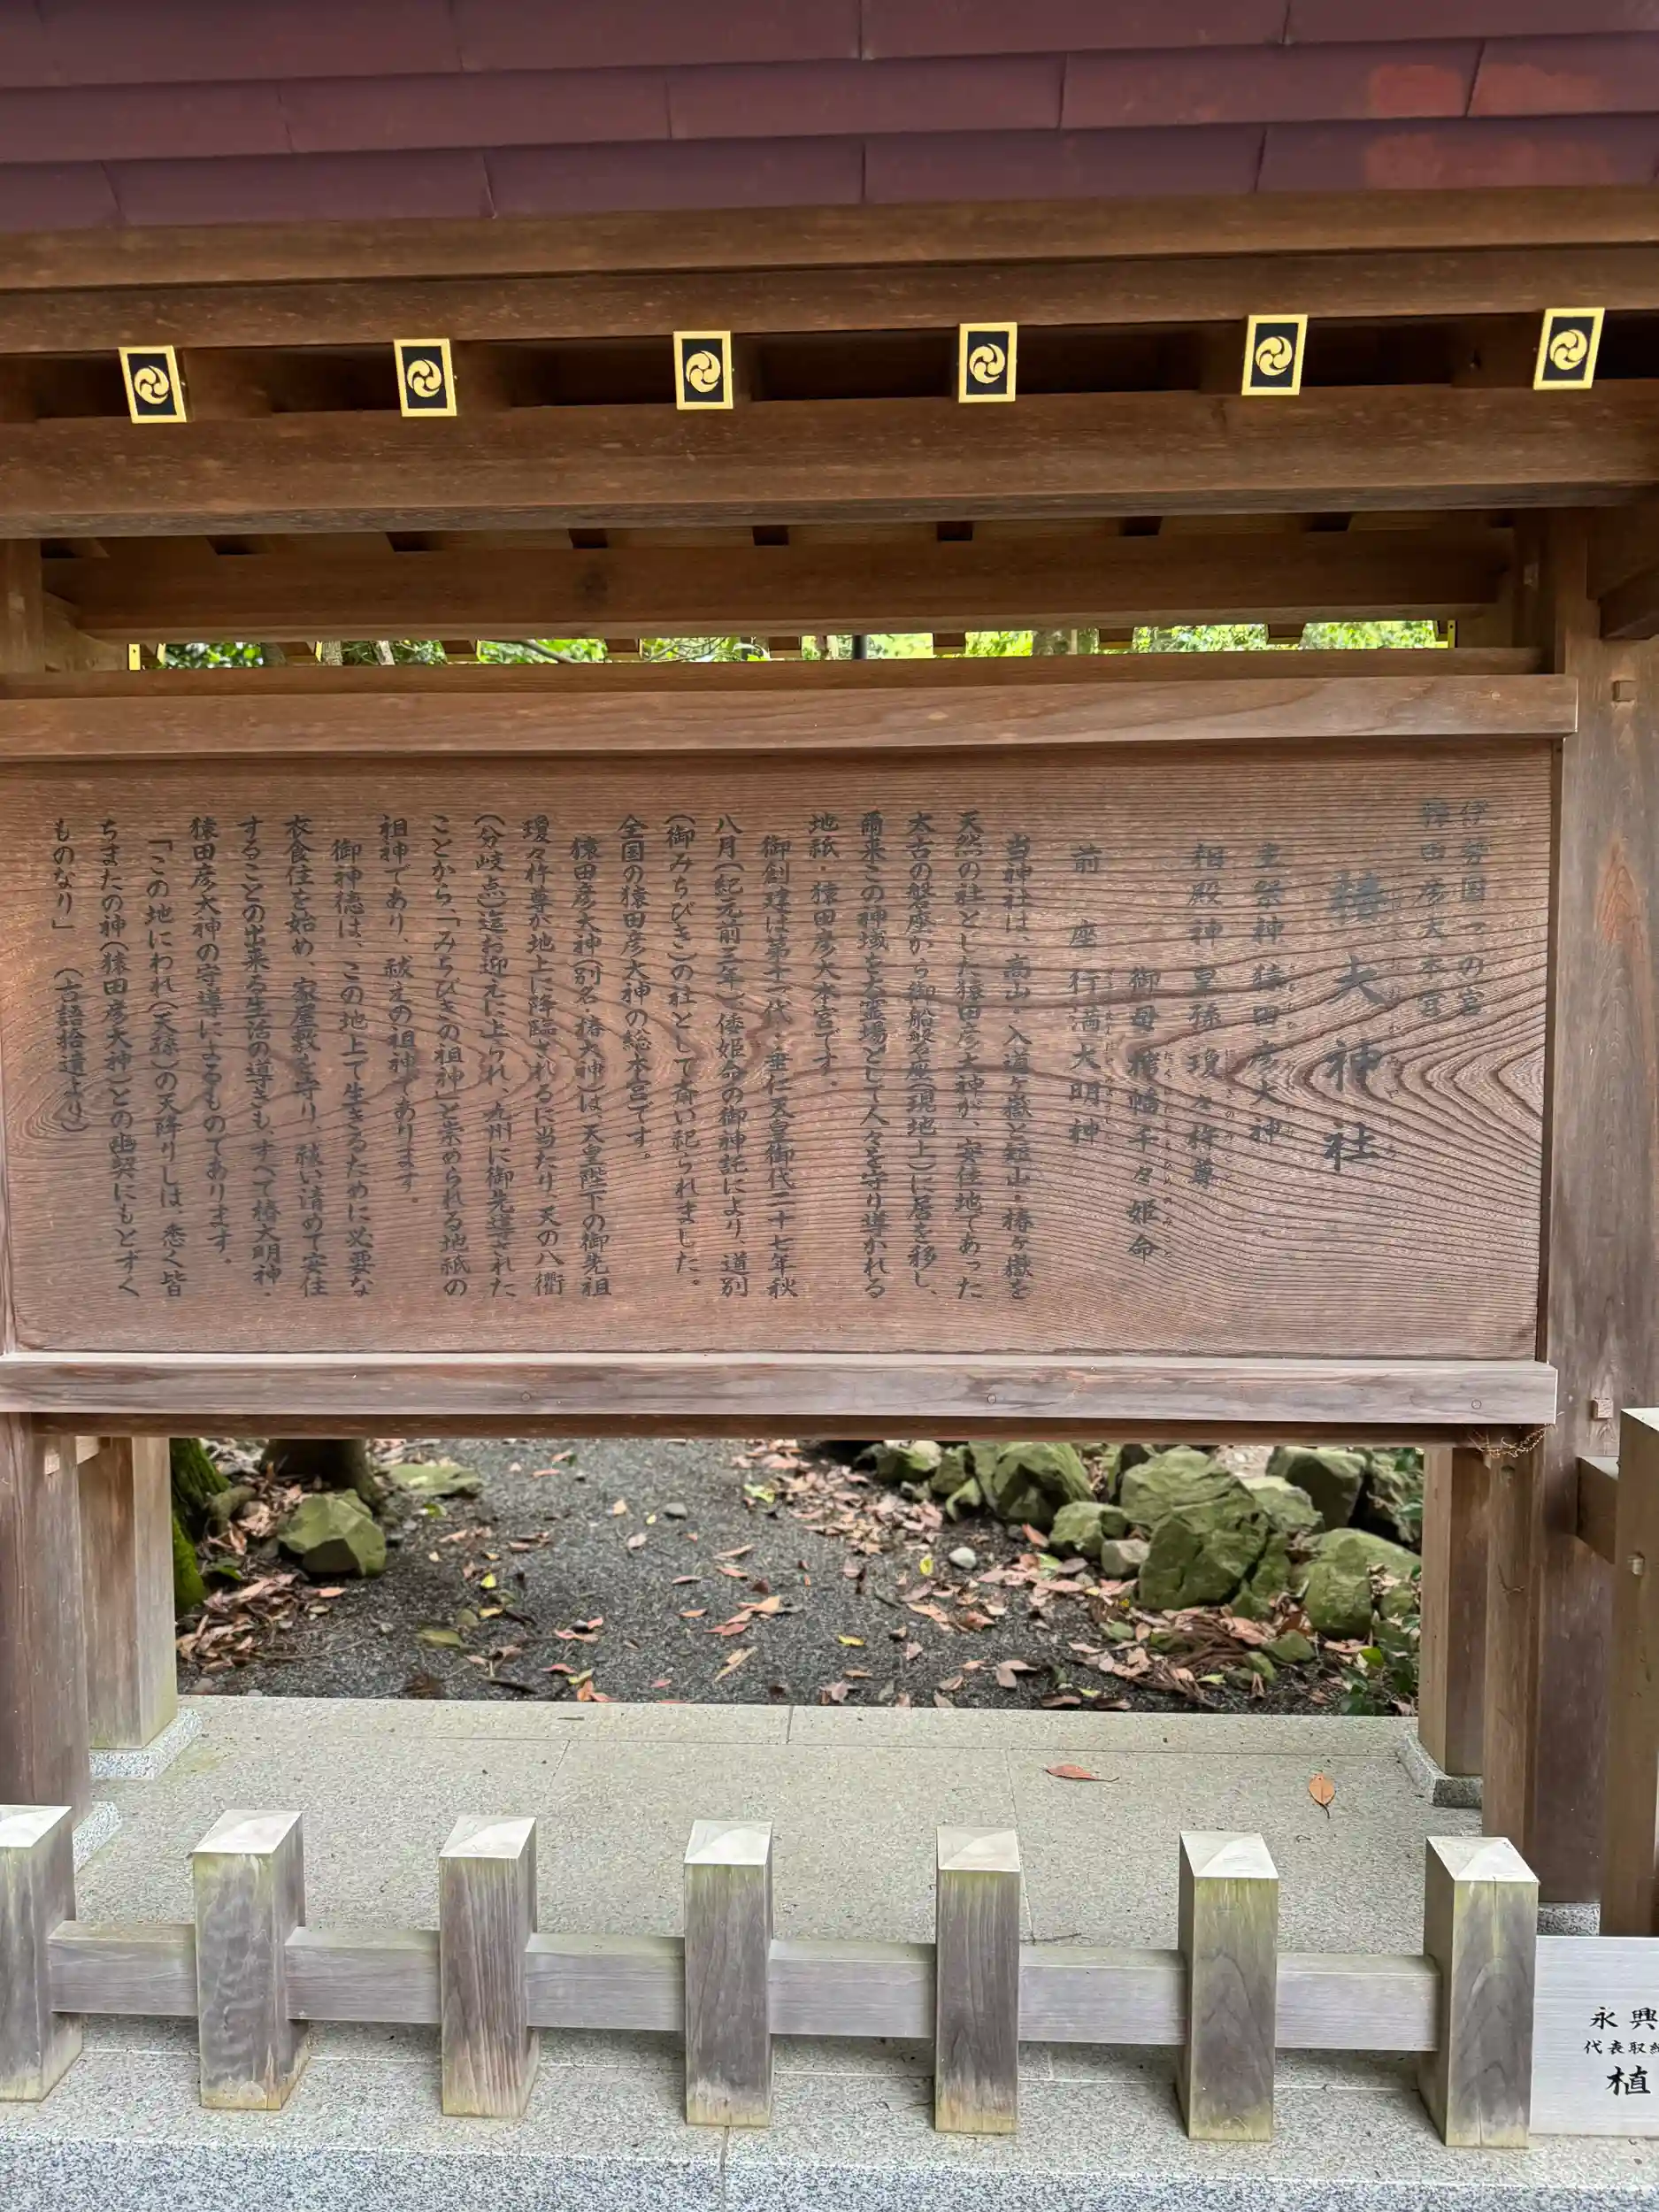 伊勢国一の宮
猿田彦大本宮
椿大神社
主祭神 猿田彦大神
相殿神 皇孫 瓊々杵尊
御母 栲幡千々姫命
前 座 行満大明神
当神社は、高山・入道ヶ嶽と短山・椿ヶ嶽を
天然の社とした猿田彦大神が、安住地であった
太古の磐座から御船磐座(現地上)に居を移し、
爾来この神域を大霊場として人々を守り導かれる
地祇・猿田彦大本宮です。
御創建は第十一代・垂仁天皇御代二十七年秋
八月(紀元前三年)、倭姫命の御神託により、道別
(御みちびき)の社として斎い祀られました。
全国の猿田彦大神の総本宮です。
猿田彦大神(別名・椿大神)は、天皇陛下の御先祖
瓊々杵尊が地上に降臨されるに当たり、天の八衢
(分岐点)迄お迎えに上られ、九州に御先導された
ことから、「みちびきの祖神」と崇められる地祇の
祖神であり、祓えの祖神であります。
御神徳は、この地上で生きるために必要な
衣食住を始め、家屋敷を守り、祓い清めて安住
することの出来る生活の導きも、すべて椿大明神・
猿田彦大神の守導によるものであります。
「この地にわれ(天孫)の天降りしは、悉く皆
ちまたの神(猿田彦大神)との幽契にもとずく
ものなり」 (古語拾遺より)
永興
代表取締
植